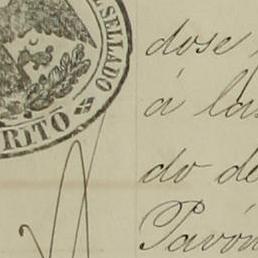 SELLADO
RITO
dose
á las
do de
Pavón